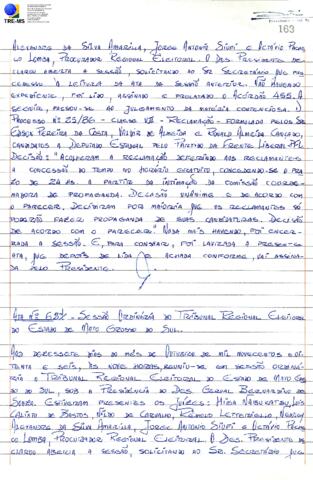 TRE-MS
163
Alexandre da Silva Amarilla, Jorge Antonio Siufi e Octávio Pache-
co Lomba, Procurador Regional Eleitoral. O Des. Presidente de-
clarou aberta a sessão, solicitando ao Sr. Secretário que pro-
cedesse à leitura da ata da sessão anterior. Não havendo
expediente, foi lido, assinado e publicado o Acórdão 459. A
seguir, passou-se ao julgamento da matéria contenciosa. 1)
Processo nº 25/86 - Classe VII - Reclamação - Formulado pelos Srs.
Cássio Pereira da Costa, Valdir de Almeida e Ronald Almeida Cançado,
candidatos a Deputado Estadual pelo Partido da Frente Liberal-PFL
Decisão: "Acolheram a reclamação deferindo aos reclamantes
a concessão do tempo no horário gratuito, concedendo-se o pra-
zo de 24 hs. a partir da intimação da comissão coorde-
nadora de propaganda. Decisão unânime e de acordo com
o parecer. Decidiram por maioria que os reclamantes só
poderão fazer propaganda de suas candidaturas. Decisão
de acordo com o parecer." Nada mais havendo, foi encer-
rada a sessão. E, para constar, foi lavrada a presente
ata, que depois de lida e achada conforme, vai assina-
da pelo Presidente.
Ata nº 687 - Sessão Ordinária do Tribunal Regional Eleitoral
do Estado de Mato Grosso do Sul.
Aos dezessete dias do mês de outubro de mil novecentos e oi-
tenta e seis, às nove horas, reuniu-se em sessão ordiná-
ria o Tribunal Regional Eleitoral do Estado de Mato Gros-
so do Sul, sob a Presidência do Des. Gerval Bernardino de
Souza. Estiveram presentes os Juízes: Higa Nabukatsu, Luis
Calixto de Bastos, Nildo de Carvalho, Romulo Letteriello,
Alexandre da Silva Amarilla, Jorge Antonio Siufi e Octávio Pache-
co Lomba, Procurador Regional Eleitoral. O Des. Presidente de-
clarou aberta a sessão, solicitando ao Sr. Secretário que